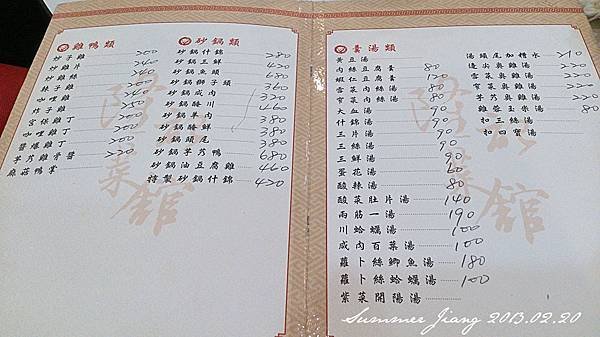 雞鴨類
炒子雞 200
炒雞片 240
炒雞絲 240
辣子雞 200
咖哩雞 240
竹子雞 250
宮保雞丁 200
咖哩雞丁 200
醬爆雞丁 200
芋艿雞骨醬 220
麻菇鴨掌
砂鍋類
砂鍋什錦 280
砂鍋三鮮 420
砂鍋魚頭 680
砂鍋獅子頭 360
砂鍋咸肉 320
砂鍋醃川 460
砂鍋羊肉 380
砂鍋醃鮮 380
砂鍋頭尾 380
砂鍋芋艿鴨 680
砂鍋油豆腐雞 460
特製砂鍋什錦 420
羹湯類
黃豆湯
肉絲豆腐羹 80
蝦仁豆腐羹 120
雪菜肉絲湯 80
榨菜肉絲湯 80
大血湯 90
什錦湯 90
三片湯 90
三絲湯 90
三鮮湯 90
蛋花湯 60
酸辣湯 80
酸菜肚片湯 140
兩筋一湯 190
川蛤蠣湯 100
咸肉百葉湯 100
蘿卜絲鯽魚湯 180
蘿卜絲蛤蠣湯 100
紫菜開陽湯
湯頭尾加糟水 210
邊尖與雞湯
雪菜與雞湯
榨菜與雞湯
芋艿與雞湯
雞蓉玉米湯 80
扣三絲湯
扣四寶湯
Summer Jiang 2013.02.20